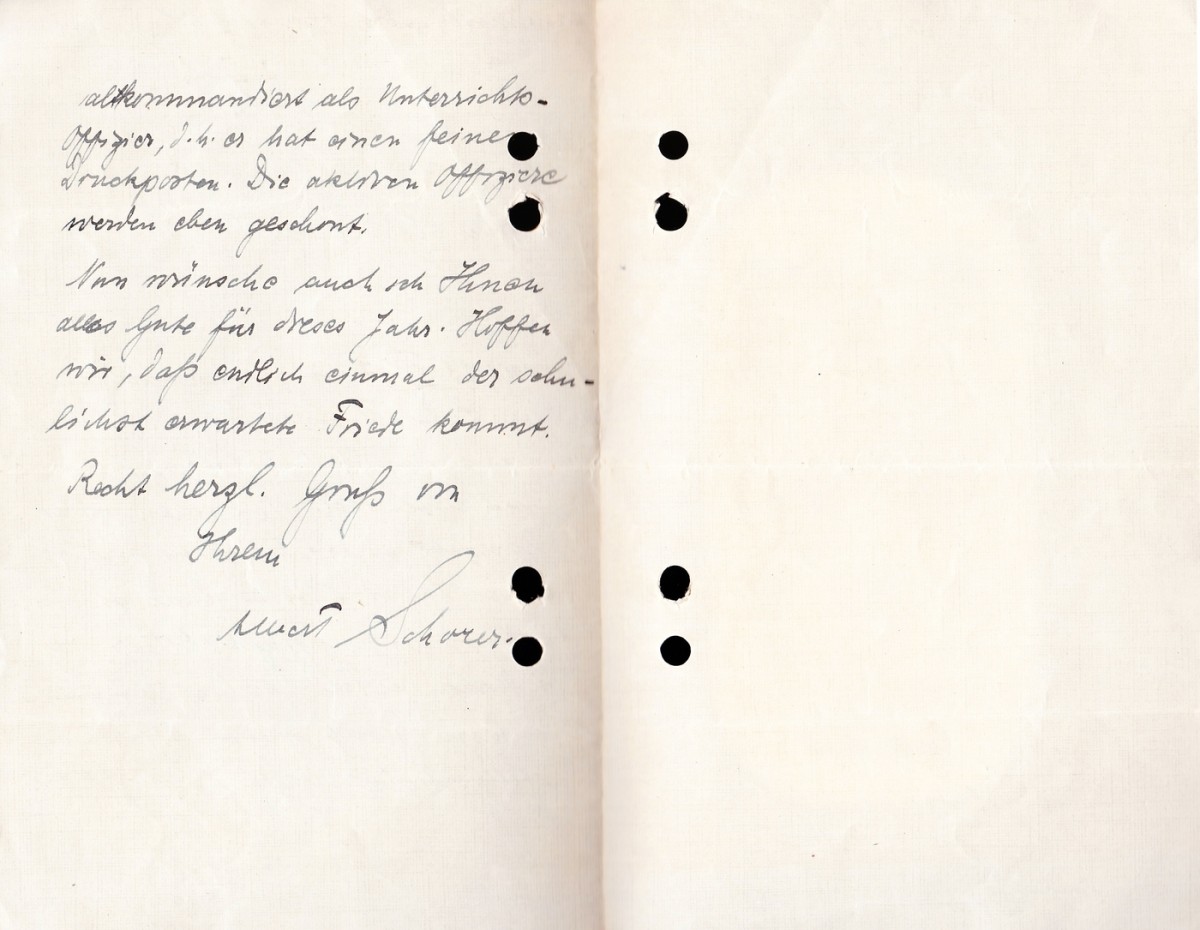 abkommandiert als Unterrichts-
Offizier, d.h. er hat einen feinen
Druckposten. Die aktiven Offiziere
werden eben geschont.
Nun wünsche auch ich Ihnen
alles Gute für dieses Jahr. Hoffen
wir, daß endlich einmal der sehn-
lichst erwartete Friede kommt.
Recht herzl. Gruß von
Ihrem
Albert Schorer.